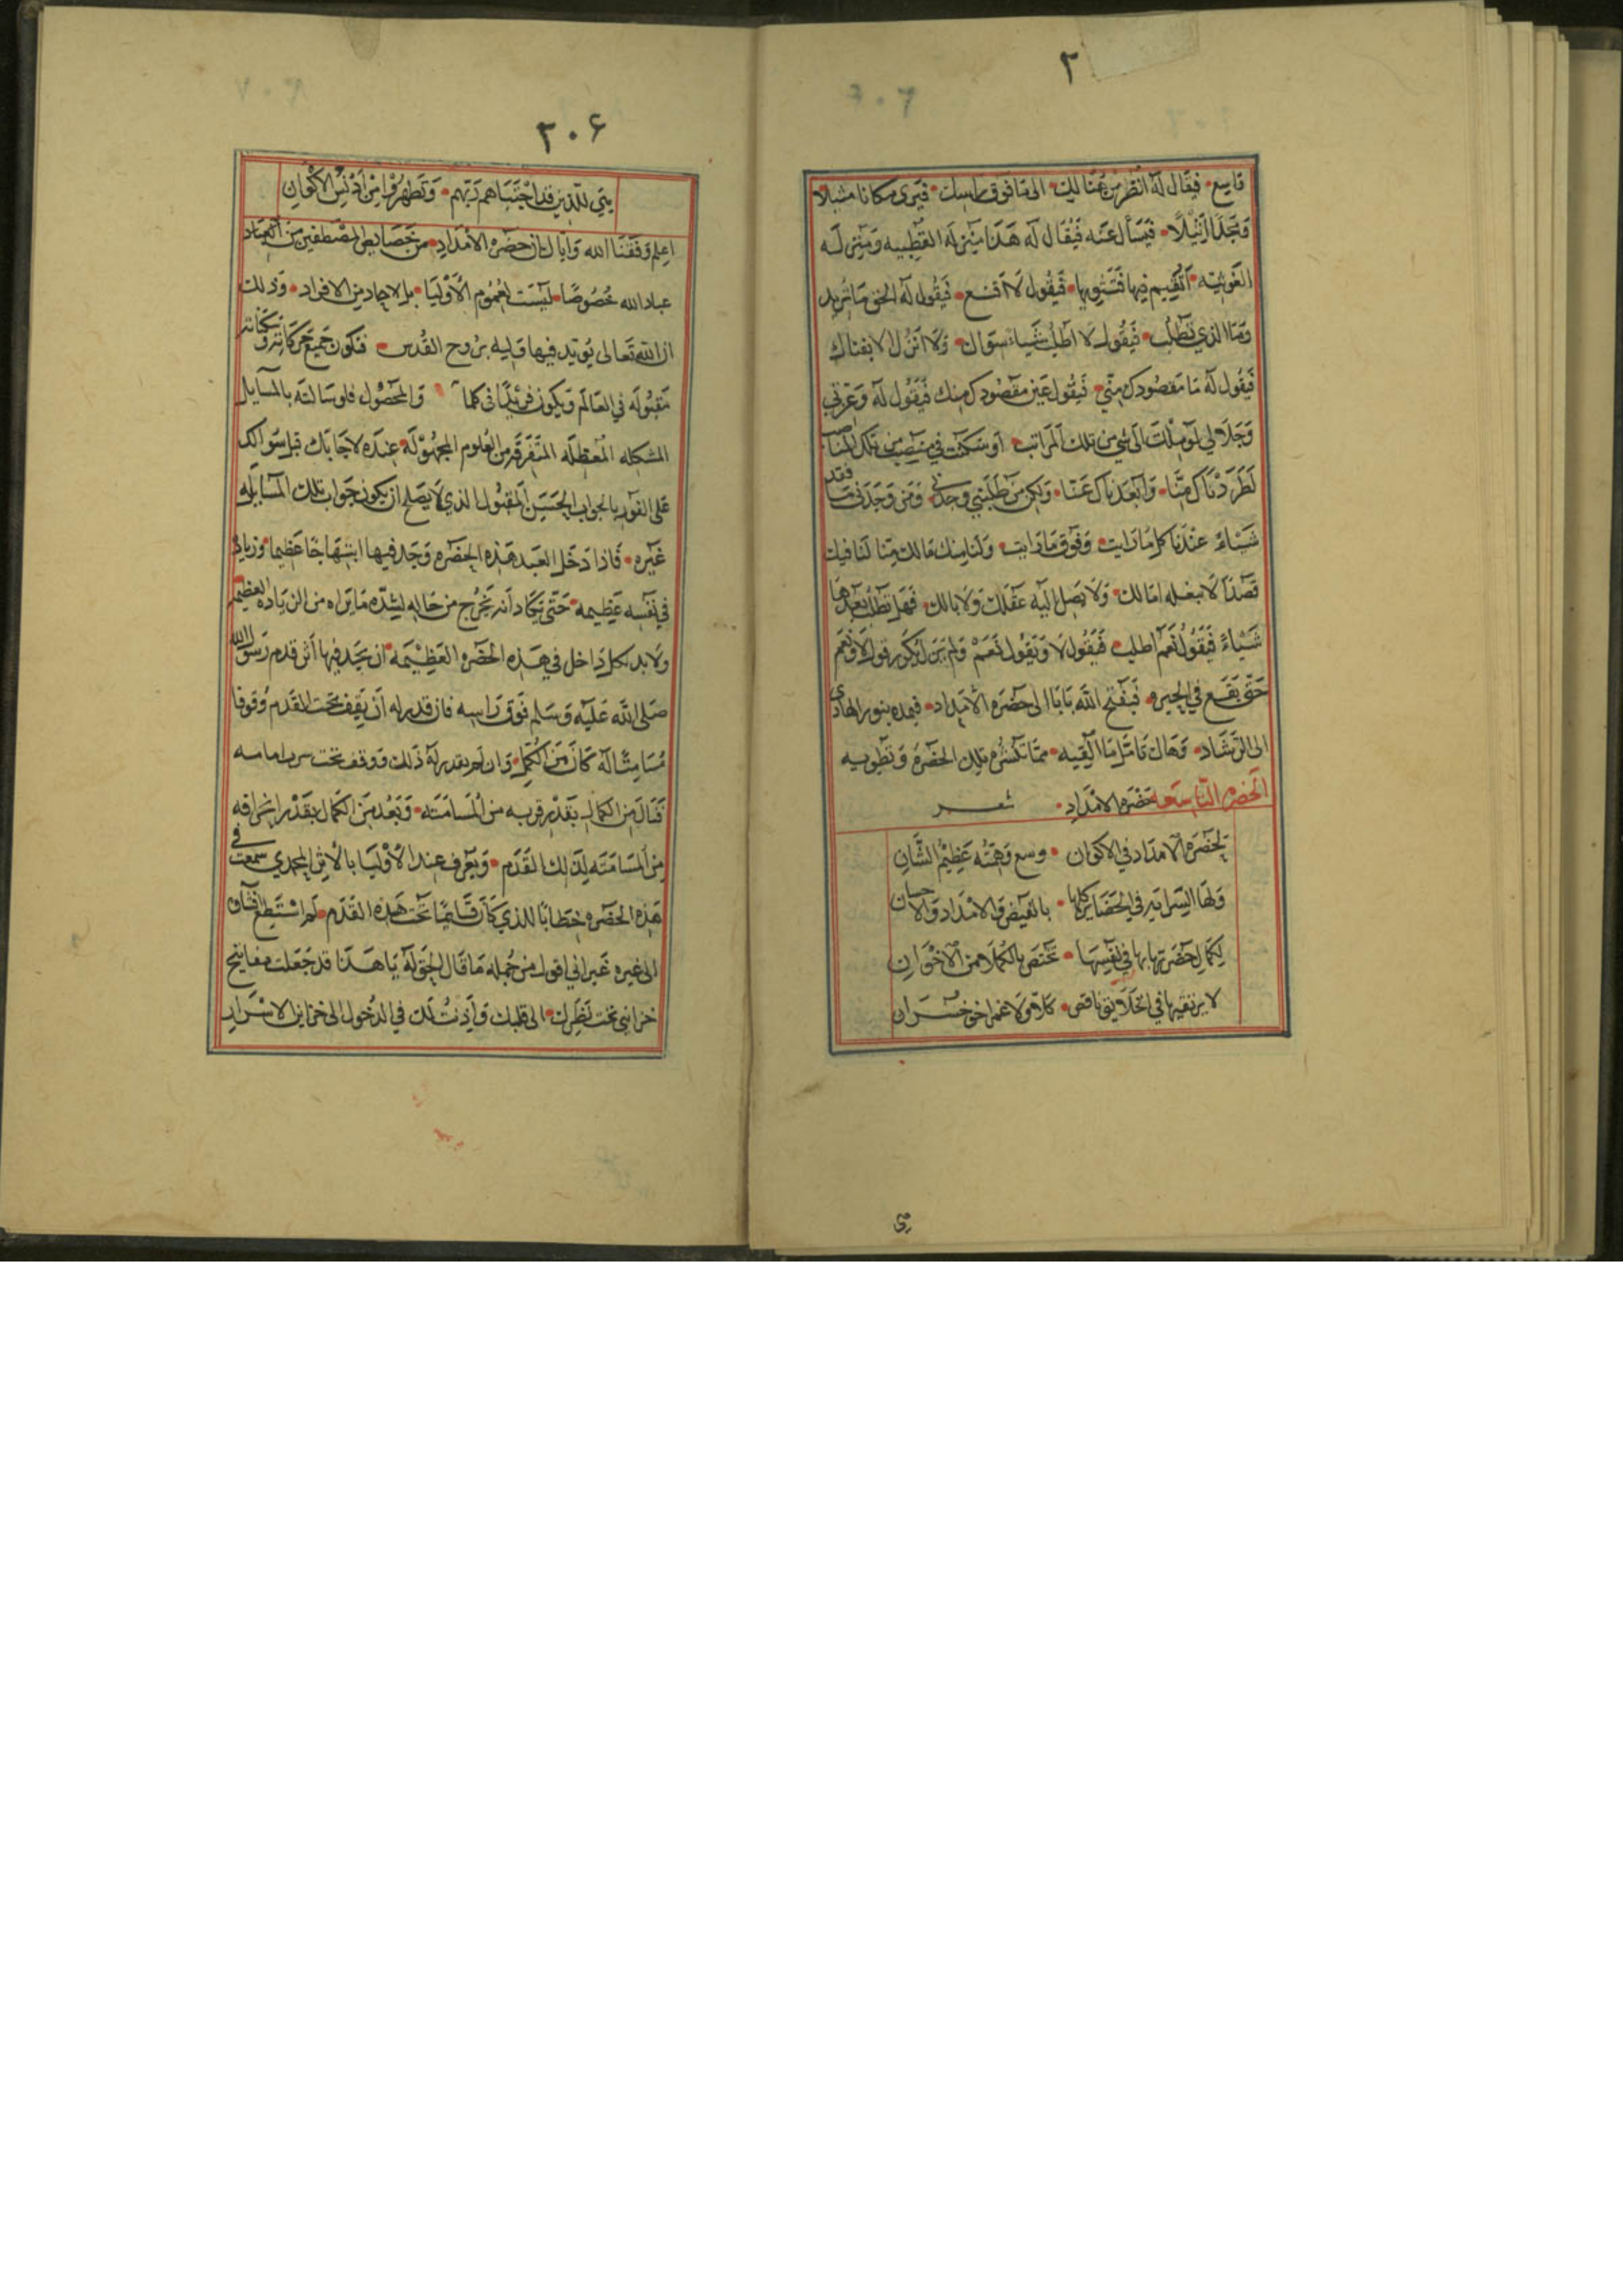 ٢
تاسع فيقال له انظر من هنالك الى ما فوق راسك فيرى مكانا مثبلا
ومجدا اثيلا فيسال عنه فيقال له هذا منزله القطبيه ومنزله
الغوثيه اتقيم فيها فيقول لا اقنع فيقول له الحق ما تريد
وما الذي تطلب فيقول لا اطلب شياء سواك ولا انزل الا بفناك
فيقول له ما مقصودك مني فيقول عين مقصودك منك فيقول له وعزتي
وجلالي لو ملت الى شي من تلك المراتب او سكنت في منصب من تلك المناصب
لطردناك منا وابعدناك عنا ولكن من طلبني وجدني ومن وجدني ما فقد
شياء عندنا كل ما رايت وفوق ما رايت ولنا منك ما لك منا لنا فيك
قصدا لا تبغله امالك ولا يصل اليه عقلك ولا بالك فهل تطلب بعدها
شياء فيقول نعم اطلب فيقول لا ويقول نعم ولم يزل يكرر قول لا ونعم
حتى يقع في الحيره فيفتح الله بابا الى حضره الامداد فيمده بنور الهادى
الى الرشاد وهاك تامل ما القيه مما تكشره تلك الحضره وتطويه
الحضره التاسعه حضره الامداد شعر
لحضره الامداد في الاكوان وسع وهمته عظيم الشان
ولها السرايه في الحضاير كلها بالفيض والامداد والاحسان
لكمال حضرتها بها في نفسها تختص بالكملاء من الاخوان
لا يرتقيها في الخلايق ناقص كلا ولا غمر اخو خسران
٢٠٦
يتي للذين قد اجتباهم ربهم وتطهروا من ادنس الاكوان
اعلم وفقنا الله واياك ان حضره الامداد من خصايص المصطفين من
عباد الله خصوصا ليست لعموم الاوليا بل لاحاد من الافراد وذلك
ان الله تعالى يويد فيها وليه بروح القدس فتكون جميع حركاته وسكناته
مقبوله في العالم ويكون في كما والمحصول فلو سالته بالمسايل
المشكله المعظله المتفرقه من العلوم المجهوله عنده لاجابك قبل سوالك
على الفور بالجواب الحسن المقبول الذي لا يصلح ان يكون جواب تلك المسايله
غيره فاذا دخل العبد هذه الحضره وجد فيها ابتهاجا عظيما وزياده
في نفسه عظيمه حتى يكاد انه يخرج من حاله لشده ما يراه من الزياده العظيمه
ولا بد لكل داخل في هذه الحضره العظيمه ان يجد فيها اثر قدم رسول الله
صلى الله عليه وسلم فوق راسه فان قدر له ان يقف تحت القدم وقوفا
مسامتا له كان من الكمل وان لم يقدر له ذلك ووقف تحت
فنال من الكمال بقدر قربه من المسامته وبعد من الكمال بقدر انحرافه
من المسامته لذلك القدم ويعرف عند الاوليا بالاثر المحمدي سمعت في
هذه الحضره خطابا للذي كان قايما تحت هذه القدم لم استطع افشاه
الى غيره غير اني اقول من جمله ما قال الحق له يا هذا قد جعلت مفاتيح
خزايني تحت نظرك الى قلبك واذنت لك في الدخول الى خزاين الاسرار